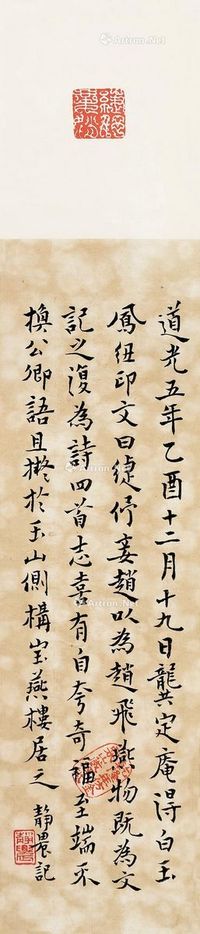 Artron.Net
道光五年乙酉十二月十九日龔定庵得白玉
鳳紐印文曰緁伃妾趙以為趙飛燕物既為文
記之復為詩四首志喜有自夸奇福至端不
換公卿語且擬於玉山側構宝燕樓居之 静農記